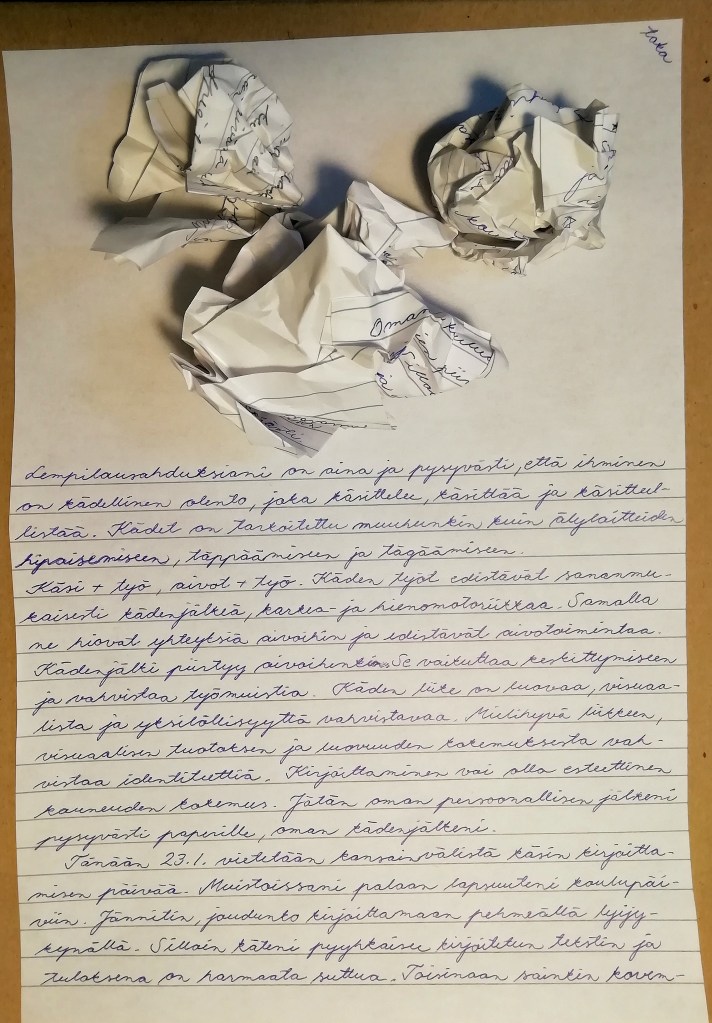 taka
Oman
Lempilausahduksiani on aina ja pysyvästi, että ihminen
on kädellinen olento, joka käsittelee, käsittää ja käsitteel-
listää. Kädet on tarkoitettu muuhunkin kuin älylaitteiden
hipaisemiseen, täppäämiseen ja tägäämiseen.
Käsi + työ, aivot + työ. Käden työt edistävät sananmu-
kaisesti kädenjälkeä, karkea- ja hienomotoriikkaa. Samalla
ne hiovat yhteyksiä aivoihin ja edistävät aivotoimintaa.
Kädenjälki piirtyy aivoihinkin. Se vaikuttaa keskittymiseen
ja vahvistaa työmuistia. Käden liike on luovaa, visuaa-
lista ja yksilöllisyyttä vahvistavaa. Mielihyvä liikkeen,
visuaalisen tuotoksen ja luovuuden kokemuksesta vah-
vistaa identiteettiä. Kirjoittaminen voi olla esteettinen
kauneuden kokemus. Jätän oman persoonallisen jälkeni
pysyvästi paperille, oman kädenjälkeni.
Tänään 23.1. vietetään kansainvälistä käsin kirjoitta-
misen päivää. Muistoissani palaan lapsuuteni koulupäi-
viin. Jännitin, joudunko kirjoittamaan pehmeällä lyijy-
kynällä. Silloin käteni pyyhkäisee kirjoitetun tekstin ja
tuloksena on harmaata suttua. Toisinaan sainkin kovem-